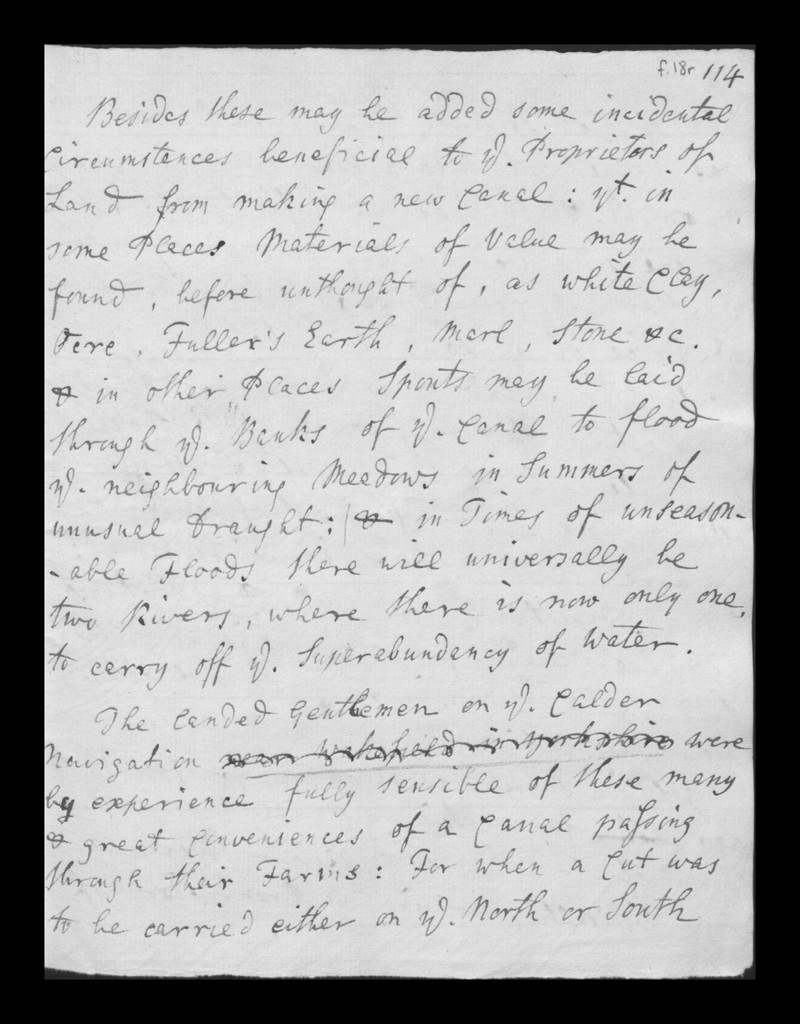 f.18r 114
Besides these may be added some incidental
Circumstances beneficial to yͤ. Proprietors of
Land from making a new Canal: yͭ. in
some Places Materials of Value may be
found, before unthought of, as white Clay,
Fuller's Earth, Marl, Stone &c.
& in other Places Spouts may be laid
through yͤ. Banks of yͤ. Canal to flood
yͤ. neighbouring Meadows in Summers of
unusual Draught: & in Times of unseason-
-able Floods there will universally be
two Rivers, where there is now only one,
to carry off yͤ. Superabundancy of Water.
The landed Gentlemen on yͤ. Calder
Navigation near Wakefield in Yorkshire were
by experience fully sensible of these many
& great Conveniences of a Canal passing
through their Farms: For when a Cut was
to be carried either on yͤ. North or South